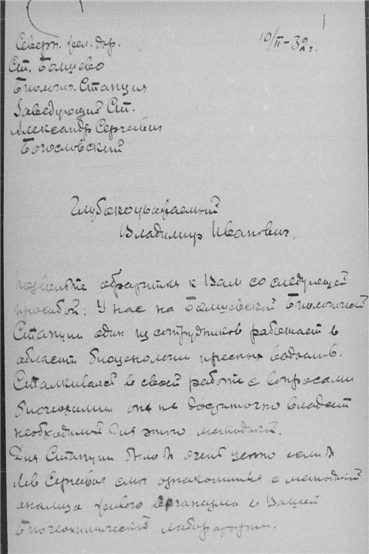 10/II-32 г.
Северн. жел. дор.
Ст. Болшево
Биолог. Станция
Заведующий Ст.
Александр Сергеевич
Богословский
Глубокоуважаемый
Владимир Иванович.
Позвольте обратиться к Вам со следующей
просьбой: У нас на Болшевской Биологической
Станции один из сотрудников работает в
области биоценологии пресных водоемов.
Сталкиваясь в своей работе с вопросами
биогеохимии он не достаточно владеет
необходимой для этого методикой.
Для Станции было бы очень ценно если бы
Лев Сергеевич смог ознакомиться с методикой
анализа живого организма в Вашей
Биогеохимической лаборатории.